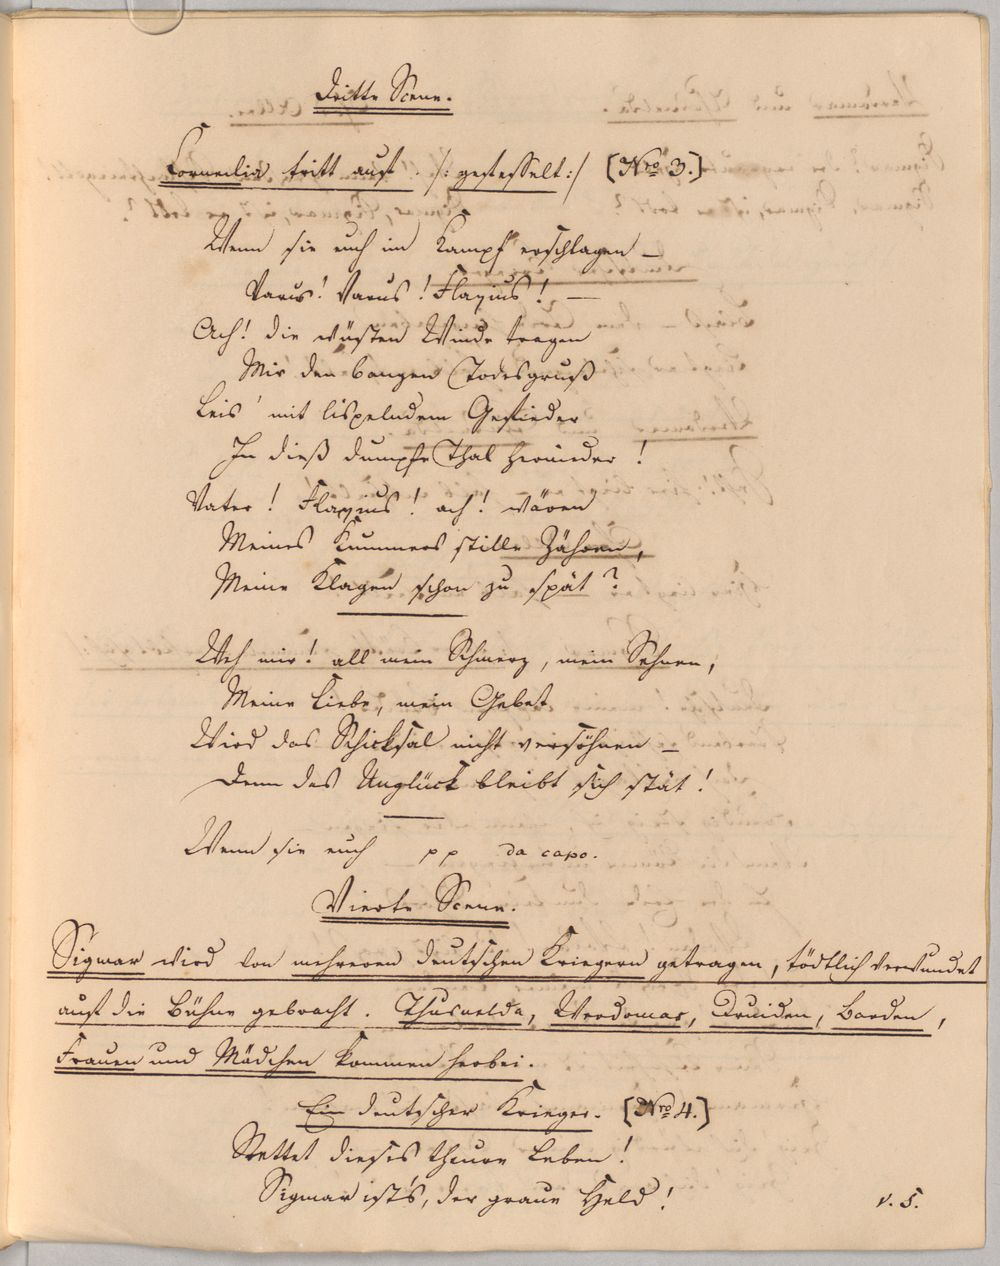 Dritte Scene.
Cornelia tritt auf. /: gefesselt :/ [Nro 3.]
Wenn sie euch im Kampf erschlagen —
Varus! Varus! Flavius! —
Ach! die wüsten Winde tragen
Mir den bangen Todesgruß
Leis' mit lispelndem Gefieder
In dieß dumpfe Thal hernieder!
Vater! Flavius! ach! wären
Meines Kummers stille Zähren,
Meine Klagen schon zu spät?
Weh mir! all mein Schmerz, mein Sehnen,
Meine Liebe, mein Gebet
Wird das Schicksal nicht versöhnen —
Denn das Unglück bleibt sich stät!
Wenn sie euch pp da capo.
Vierte Scene.
Sigmar wird von mehreren deutschen Kriegern getragen, tödtlich verwundet
auf die Bühne gebracht. Thusnelda, Werdomar, Druiden, Barden,
Frauen und Mädchen kommen herbei.
Ein deutscher Krieger. [Nro 4.]
Rettet dieses theure Leben!
Sigmar ist's, der graue Held!
v. S.